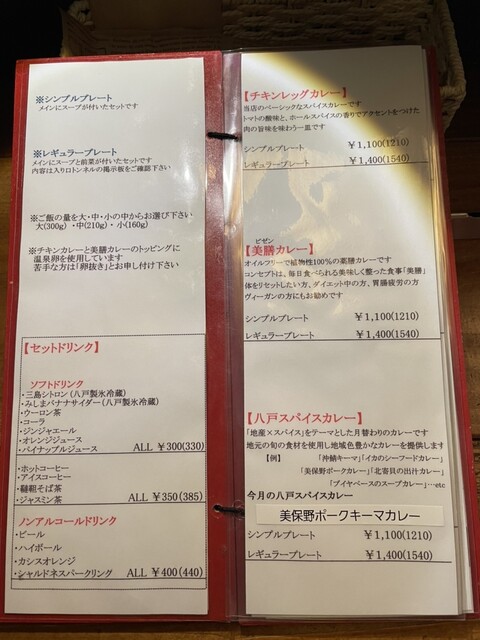 ※シンプルプレート
メインにスープが付いたセットです
※レギュラープレート
メインにスープと前菜が付いたセットです
内容は入り口トンネルの掲示板をご確認下さい
※ご飯の量を大・中・小の中からお選び下さい
大(300g) ・中(210g)・小(160g)
※チキンカレーと美膳カレーのトッピングに
温泉卵を使用しています
苦手な方は「卵抜き」とお申し付け下さい
【セットドリンク】
ソフトドリンク
・三島シトロン(八戸製氷冷蔵)
・みしまバナナサイダー(八戸製氷冷蔵)
・ウーロン茶
・コーラ
・ジンジャエール
・オレンジジュース
・パイナップルジュース ALL ¥300(330)
・ホットコーヒー
・アイスコーヒー
・韃靼そば茶
・ジャスミン茶 ALL ¥350(385)
ノンアルコールドリンク
・ビール
・ハイボール
・カシスオレンジ
・シャルドネスパークリング ALL ¥400(440)
【チキンレッグカレー】
当店のベーシックなスパイスカレーです
トマトの酸味と、ホールスパイスの香りでアクセントをつけた
肉の旨味を味わう一皿です
シンプルプレート ¥1,100(1210)
レギュラープレート ¥1,400(1540)
ビゼン
【美膳カレー】
オイルフリーで植物性100%の薬膳カレーです
コンセプトは、毎日食べられる美味しく整った食事「美膳」
体をリセットしたい方、ダイエット中の方、胃腸疲労の方
ヴィーガンの方にもお勧めです
シンプルプレート ¥1,100(1210)
レギュラープレート ¥1,400(1540)
【八戸スパイスカレー】
「地産×スパイス」をテーマとした月替わりのカレーです
地元の旬の食材を使用し地域色豊かなカレーを提供します
【例】 「沖鯖キーマ」「イカのシーフードカレー」
「美保野ポークカレー」「北寄貝の出汁カレー」
「ブイヤベースのスープカレー」…etc
今月の八戸スパイスカレー
美保野ポークキーマカレー
シンプルプレート ¥1,100(1210)
レギュラープレート ¥1,400(1540)